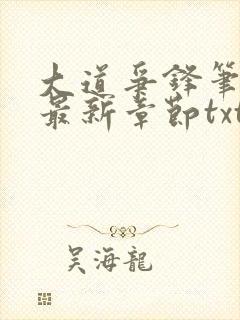 大道爭鋒筆
最新章節txt
吴海龍